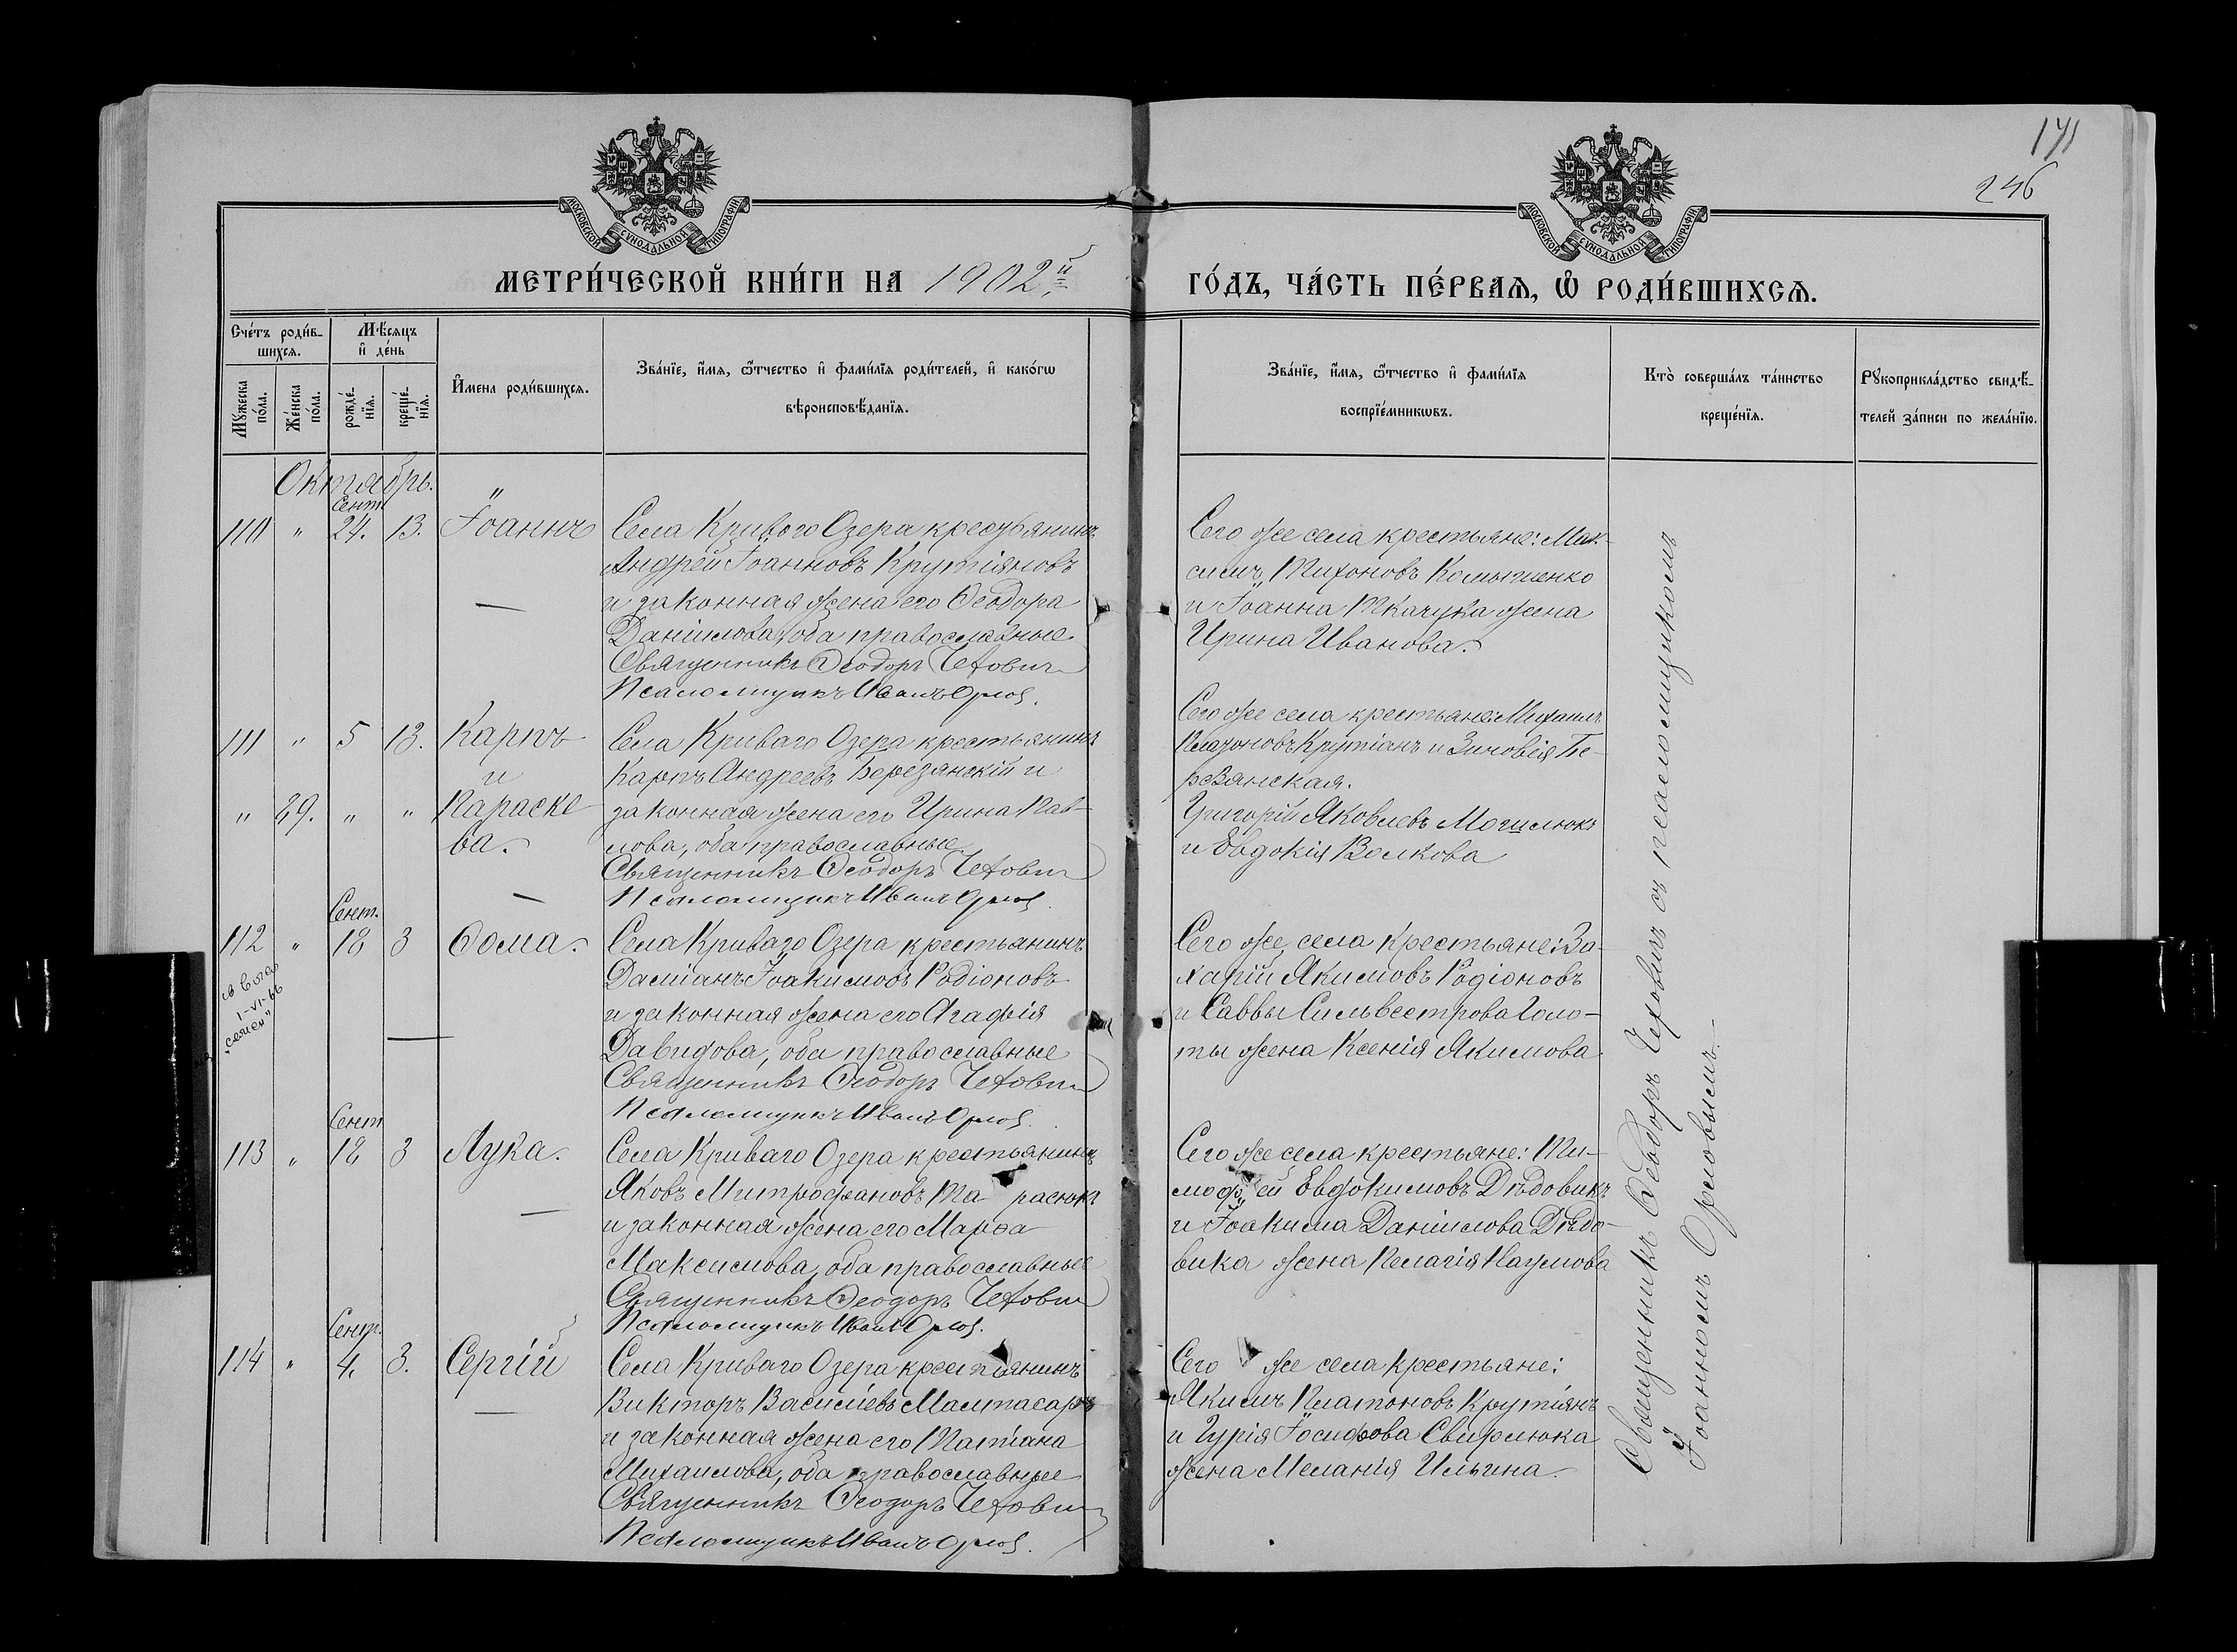 171
246
МОСКОВСКОЙ СѴНОДАЛЬНОЙ ТИПОГРАФІИ
МОСКОВСКОЙ СѴНОДАЛЬНОЙ ТИПОГРАФІИ
МЕТРИ́ЧЕСКОЙ КНИ́ГИ НА 1902й
ГО́ДЪ, ЧА́СТЬ ПЕ́РВАѦ, Ѡ҆ РОДИ́ВШИХСѦ.
Сче́тъ роди́в-
шихсѧ.
Мѣ́сѧцъ
и҆ де́нь
Мꙋ́жеска
по́ла.
Же́нска
по́ла.
рожде́-
нїѧ.
креще́-
нїѧ.
И҆мена роди́вшихсѧ.
Зва́нїе, и҆́мѧ, ѻ҆́тчество и҆ фами́лїѧ роди́телей, и҆ како́гѡ
вѣроисповѣ́данїѧ.
Зва́нїе, и҆́мѧ, ѻ҆́тчество и҆ фами́лїѧ
воспрїе́мникѡвъ.
Кто̀ соверша́лъ та́инство
креще́нїѧ.
Рꙋкоприкла́дство свидѣ́-
телей за́писи по жела́нїю.
Октябрь.
Сент.
110 " 24. 13. Іоаннъ Села Криваго Озера крестьянинъ
Андрей Іоанновъ Крутіяновъ
и законная жена его Ѳеодора
Даніилова, оба православные
Священникъ Ѳеодоръ Чехович
Псаломщикъ Иванъ Орлов.
Сего же села крестьяне: Мак-
симъ Тихоновъ Комышенко
и Іоанна Ткачука жена
Ирина Иванова.
111 " 5 13. Карпъ Села Криваго Озера крестьянинъ
и Карпъ Андреевъ Березянскій и
" 89. " " Параске законная жена его Ирина Пав-
ва. лова, оба православные
Священникъ Ѳеодоръ Чехович
Псаломщикъ Иванъ Орлов.
Сего же села крестьяне: Михаилъ
Крутіанъ и Зиновія Бе-
резянская.
Григорій Яковлевъ Могилюкъ
и Евдокія Волкова
Сент.
112 " 18 3 Ѳома. Села Криваго Озера крестьянинъ
Даміанъ Іоакимовъ Родіоновъ
и законная жена его Агафія
Давидова, оба православные
Священникъ Ѳеодоръ Чехович
Псаломщикъ Иванъ Орлов.
1-VI-66
Сего же села крестьяне: За-
харій Якимовъ Родіоновъ
и Саввы Сильвестрова Голо-
ты жена Ксенія Якимова
Сент
113 " 18 3 Лука. Села Криваго Озера крестьянинъ
Яковъ Митрофановъ Та расюкъ
и законная жена его Марѳа
Максимова, оба православные
Священникъ Ѳеодоръ Чехович
Псаломщикъ Иванъ Орлов.
Сего же села крестьяне: Ти-
моф ей Евдокимовъ Дѣдовикъ
и Іоакима Даніилова Дѣдо-
вика жена Пелагія Наумова
Сент.
114 " 4. 3. Сергій Села Криваго Озера крестьянинъ
Викторъ Василіевъ Малтасаръ
и законная жена его Татіана
Михаилова, оба православные
Священникъ Ѳеодоръ Чехович
Псаломщикъ Иванъ Орлов.
Сего же села крестьяне:
Якимъ Платоновъ Крутіянъ
и Гурія Іосифова Свирлюка
жена Меланія Ильина.
Священникъ Ѳеодоръ Чеховичъ съ псаломщикомъ
Іоанномъ Орловымъ.